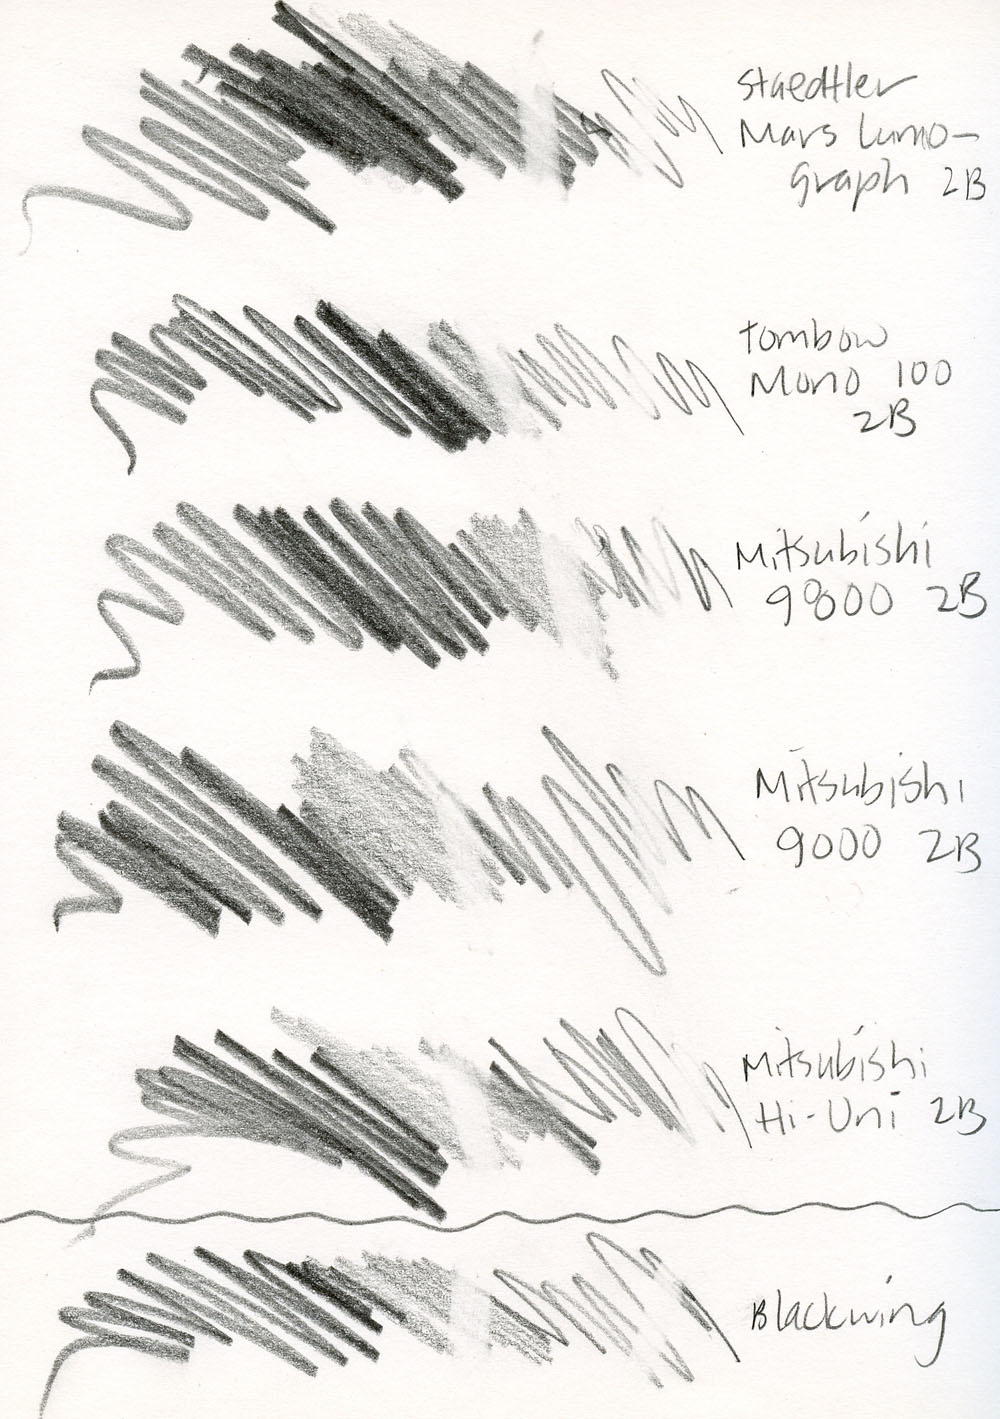 Staedtler
Mars Lumo-
graph 2B
Tombow
Mono 100
2B
Mitsubishi
9800 2B
Mitsubishi
9000 2B
Mitsubishi
Hi-Uni 2B
Blackwing